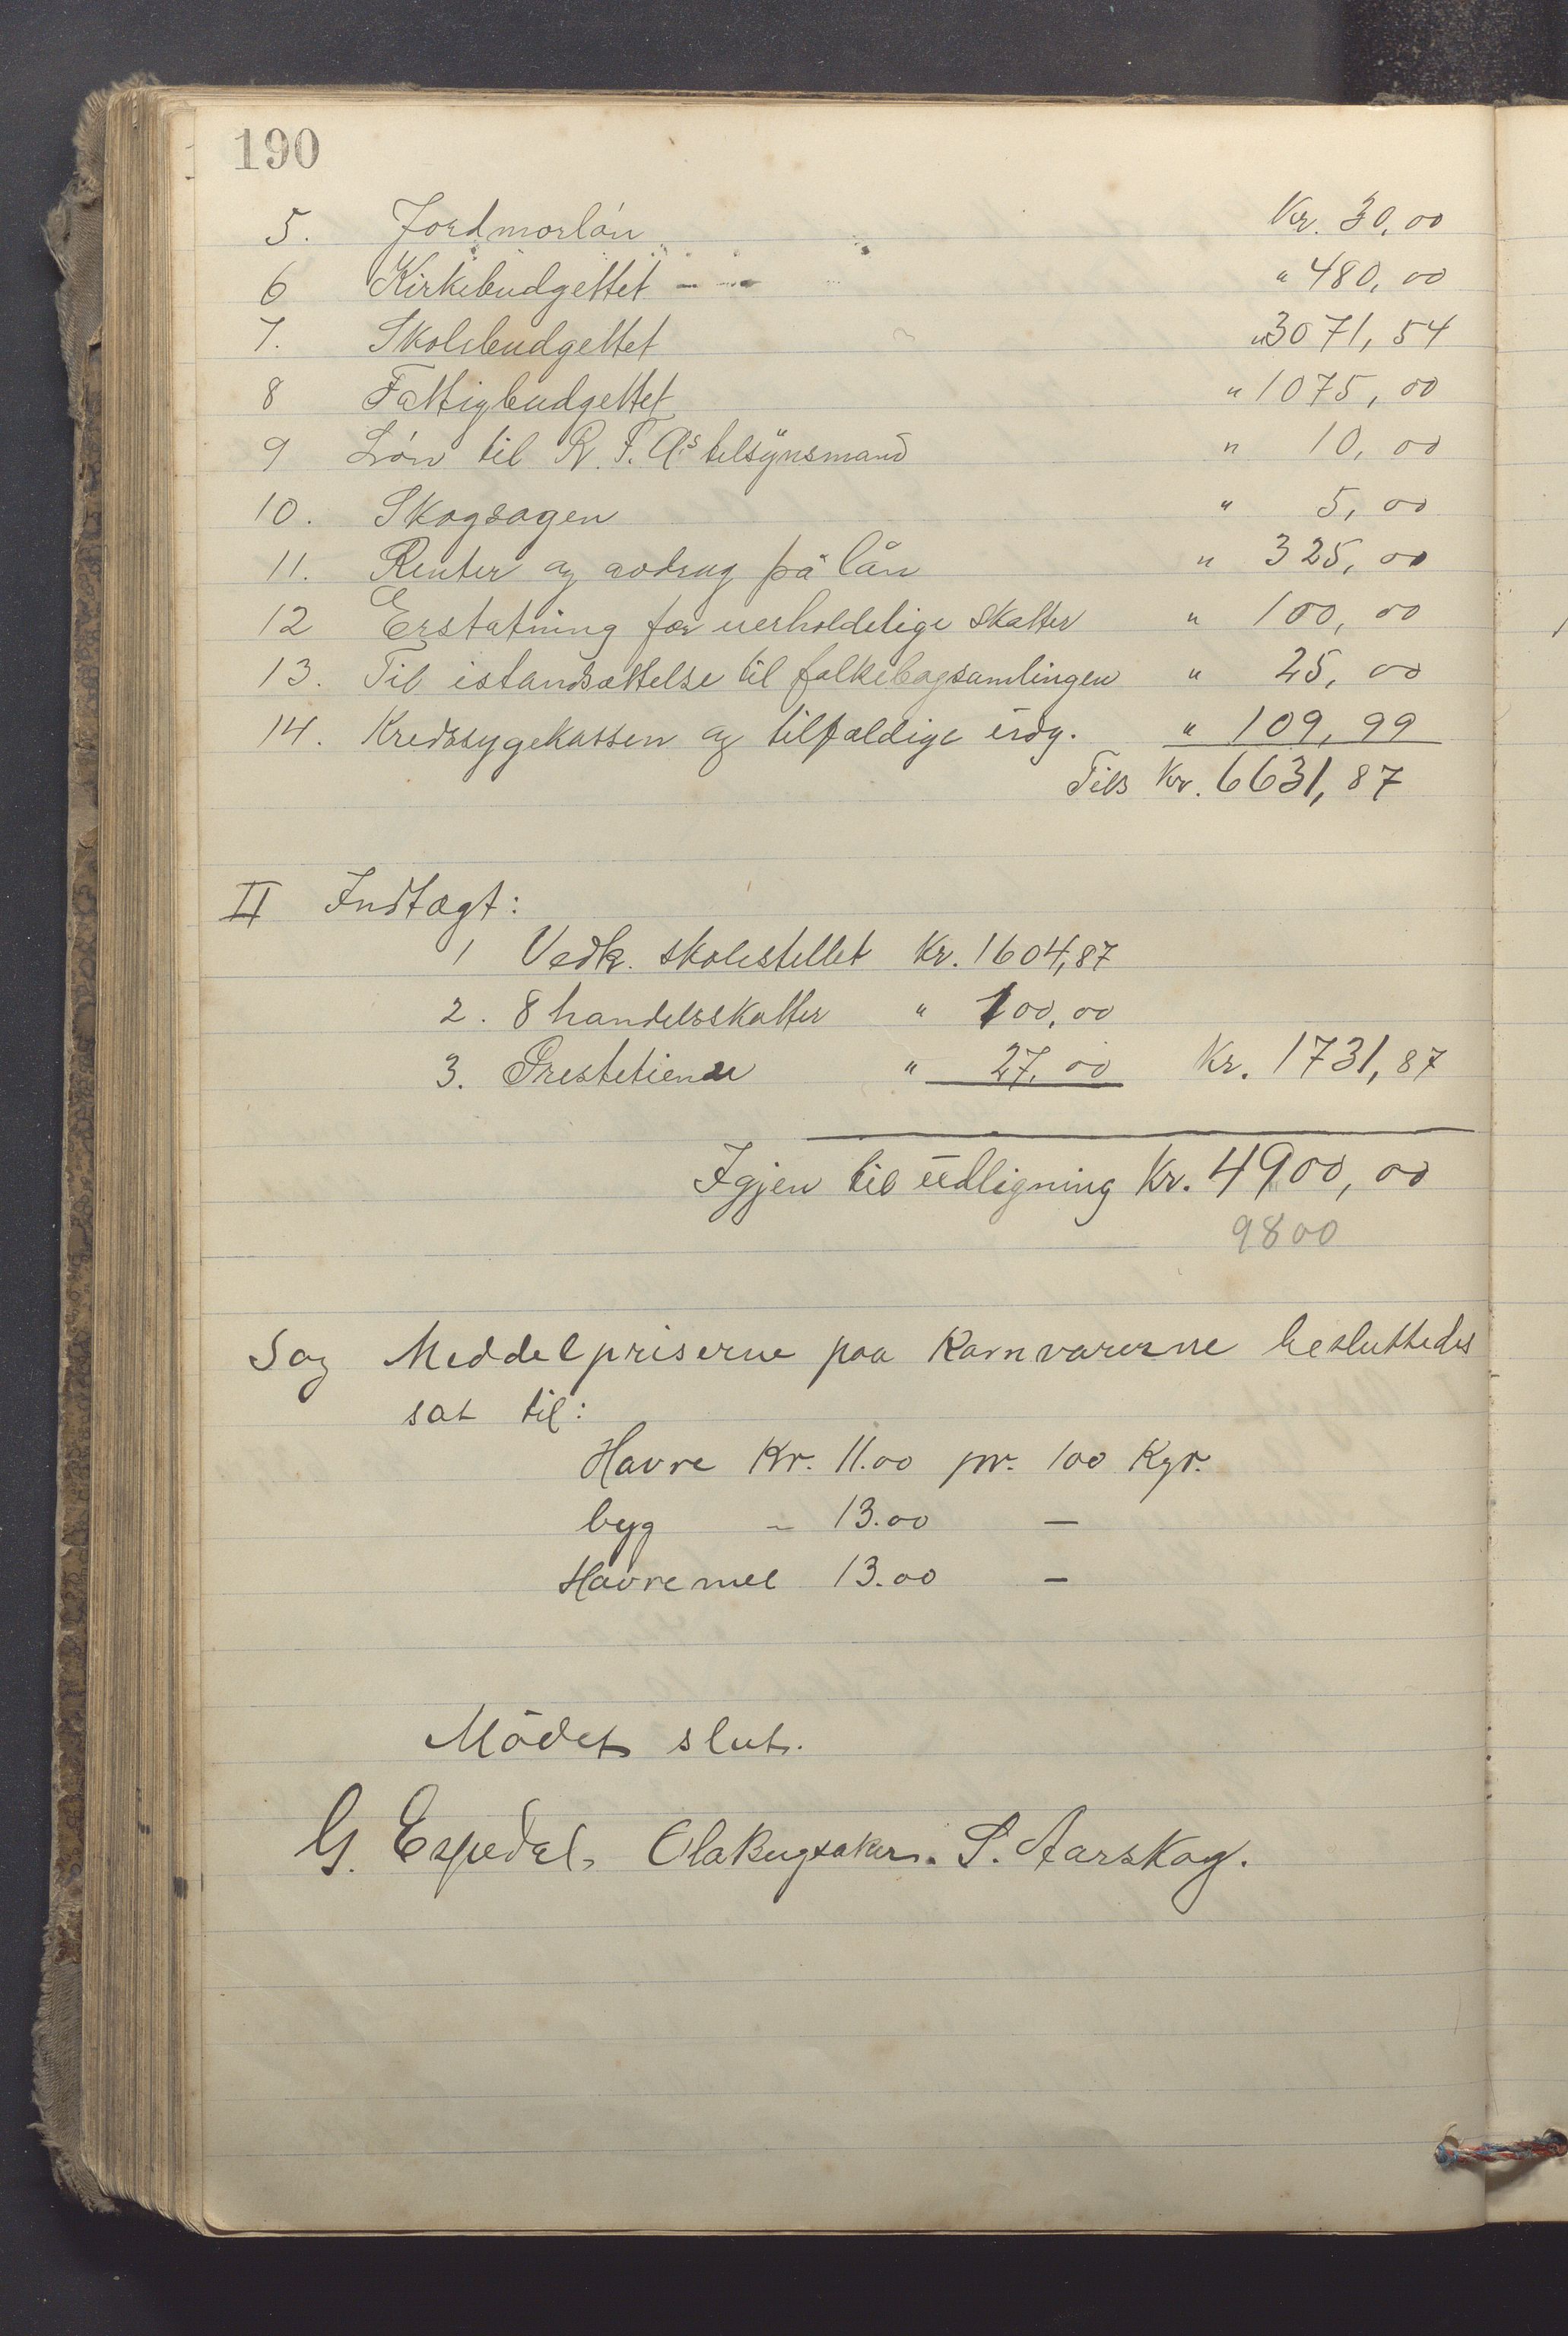 190
5. Jordmorløn Kr. 30,00
6 Kirkebudgettet - - " 480,00
7. Skolebudgettet " 3071,54
8 Fattigbudgettet " 1075,00
9 Løn til R. F. A.s tilsynsmand " 10,00
10. Skogsagen " 5,00
11. Renter og avdrag på lån " 325,00
12 Erstatning for uerholdelige skatter " 100,00
13. Til istandsættelse til folkebogsamlingen " 25,00
14. Kredssygekassen og tilfældige udg. " 109,99
Tils Kr. 6631,87
II Indtægt:
1 Vedk. skolestellet Kr. 1604,87
2. 8 handelsskatter " 100,00
3. Prestetiende " 27,00 Kr. 1731,87
Igjen til udligning Kr. 4900,00
9800
Sag Meddelpriserne paa Kornvarerne besluttedes
sat til:
Havre Kr. 11.00 pr. 100 Kgr.
byg - 13.00 —
Havremel 13.00 —
Mödet slut.
G. Espedal, Ola S. Aarskog.